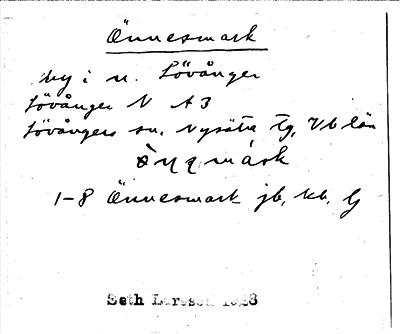 Önnesmark
by i n. Lövånger
Lövånger N A3
Lövångers sn, Nysätra tg, Vb län
1-8 Önnesmark jb, kb, lj
Seth Larsson 1928